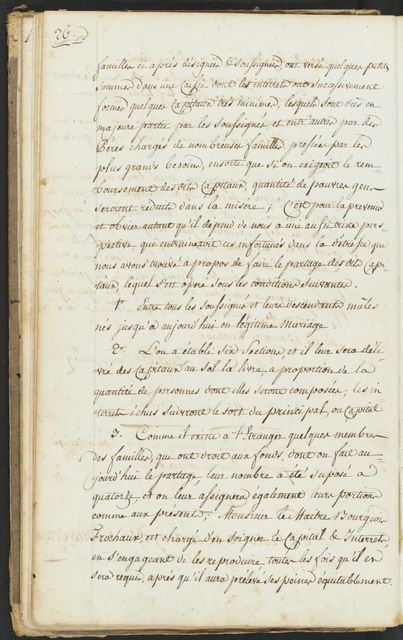 26.
familles ci après désignées & soussignées ont versé quelques petites
sommes dans une caisse dont les interrets ont sucassivement
formé quelques Capitaux très minimes, lesquels sont dûs en
majeure partie par les soussignés et entr'autres par des
Pères chargés de nombreuses familles, pressés par les
plus grands besoins, ensorte que si on exigeoit le rem-
boursement des dits Capitaux, quantité de pauvres gens
seroient reduits dans la misere; C'est pour la prevenir
et obvier autant qu'il depend de nous a une aussi triste pers-
pective qui entraineroit ces infortunés dans la détresse que
nous avons trouvé a propos de faire le partage des dits Capi-
taux, lequel s'est opéré sous les conditions suivantes.
1°. Entre tous les soussignés et leurs descendants males
nés jusqu'à aujourd'hui en légitime mariage.
2°. L'on a établi six Sections et il leur sera déli-
vré des Capitaux au sol la livre, a proportion de la
quantité de personnes dont elles seront composées; les in-
terrets echus suivront le sort du principal, ou Capital
3. Comme il existe a l'Etranger quelques membres
des familles, qui ont droit aux fonds, dont on fait au-
jourd'hui le partage, leur nombre a été suposé a
quatorze, et on leur assignera également leurs portions
comme aux presents; Monsieur le Maitre Bourgeois
Frochaux, est chargé d'en soigner le Capital & Interrets
en s'engageant de les reproduire toutes les fois qu'il en
sera requis, après qu'il aura prélevé ses peines équitablement